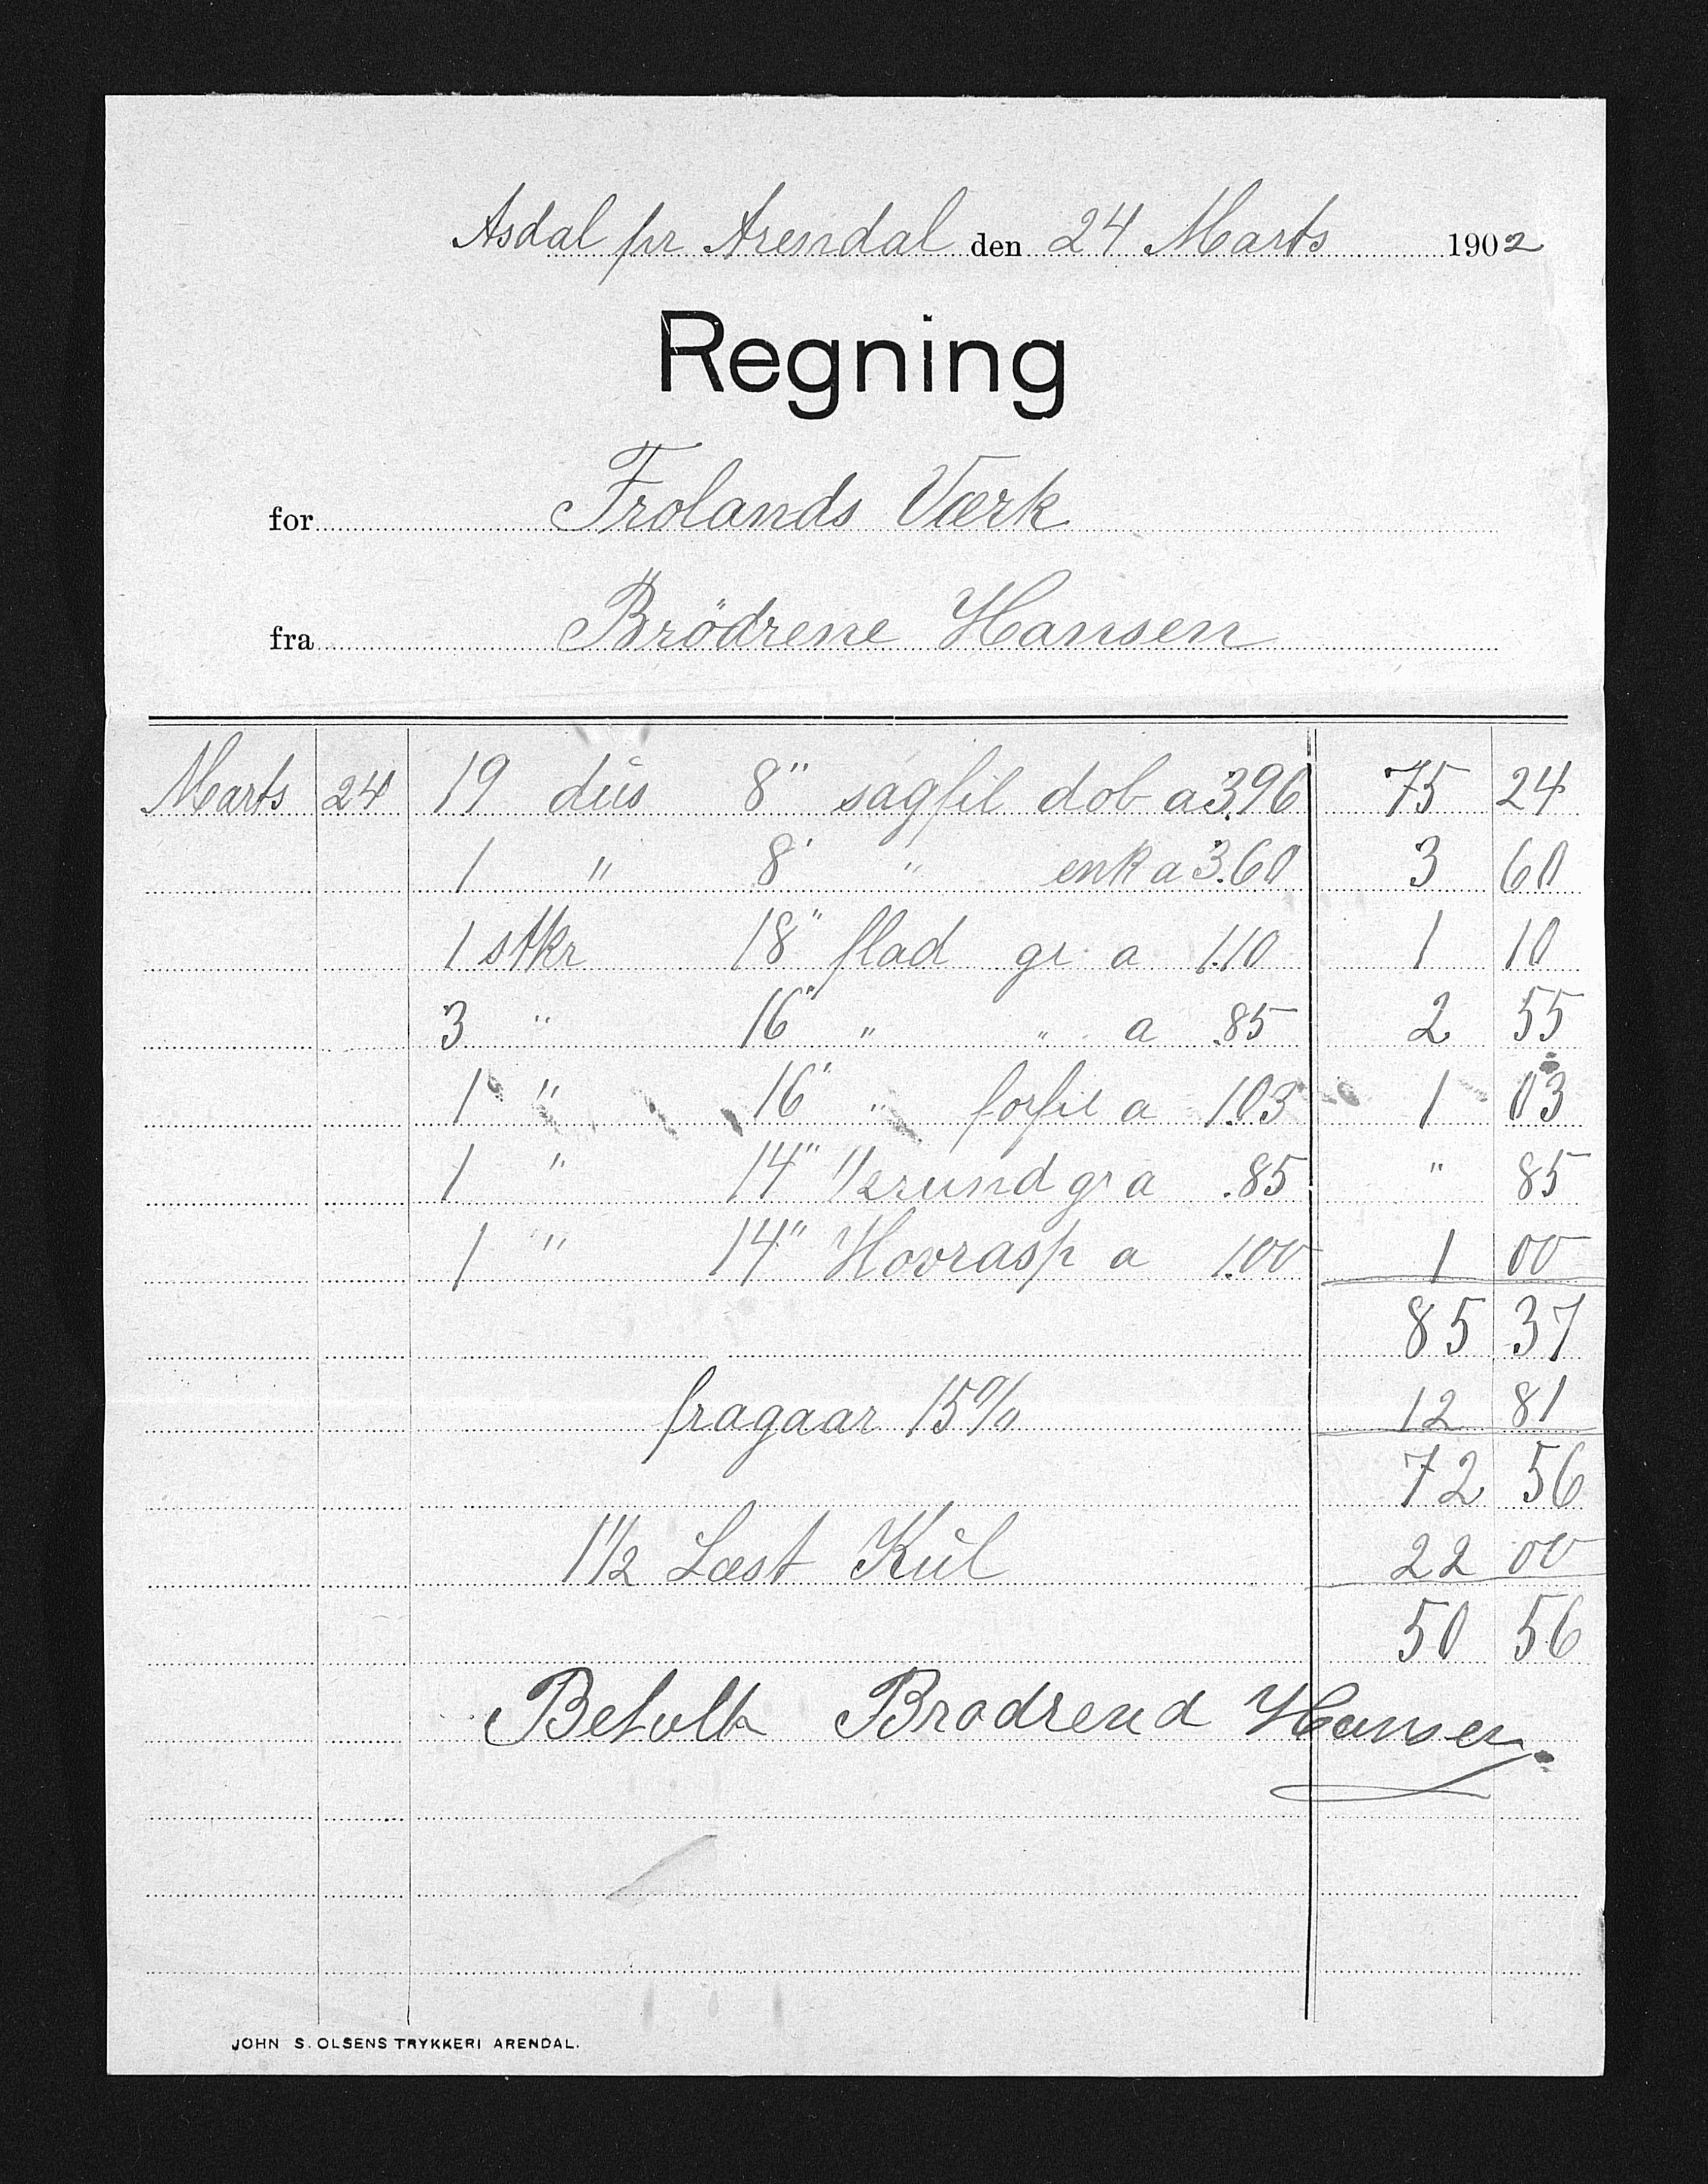 Asdal pr Arendal den 24 Marts 1902
Regning
for Frolands Værk
fra Brödrene Hansen
Marts 24 19 dŭs 8" sagfil dob a 3.96 75 24
1 " 8" " enk a 3.60 3 60
1 stkr 18" flad gr. a 1.10 1 10
3 " 16" " " a .85 2 55
1 " 16" " forfil a 1.03 1 03
1 " 14" 1/2rund gr a .85 " 85
1 " 14" Hovrasp a 1.00 1 00
85 37
fragaar 15% 12 81
72 56
1 1/2 Læst Kŭl 22 00
50 56
Betalt Brødrene Hansen.
JOHN S. OLSENS TRYKKERI ARENDAL.